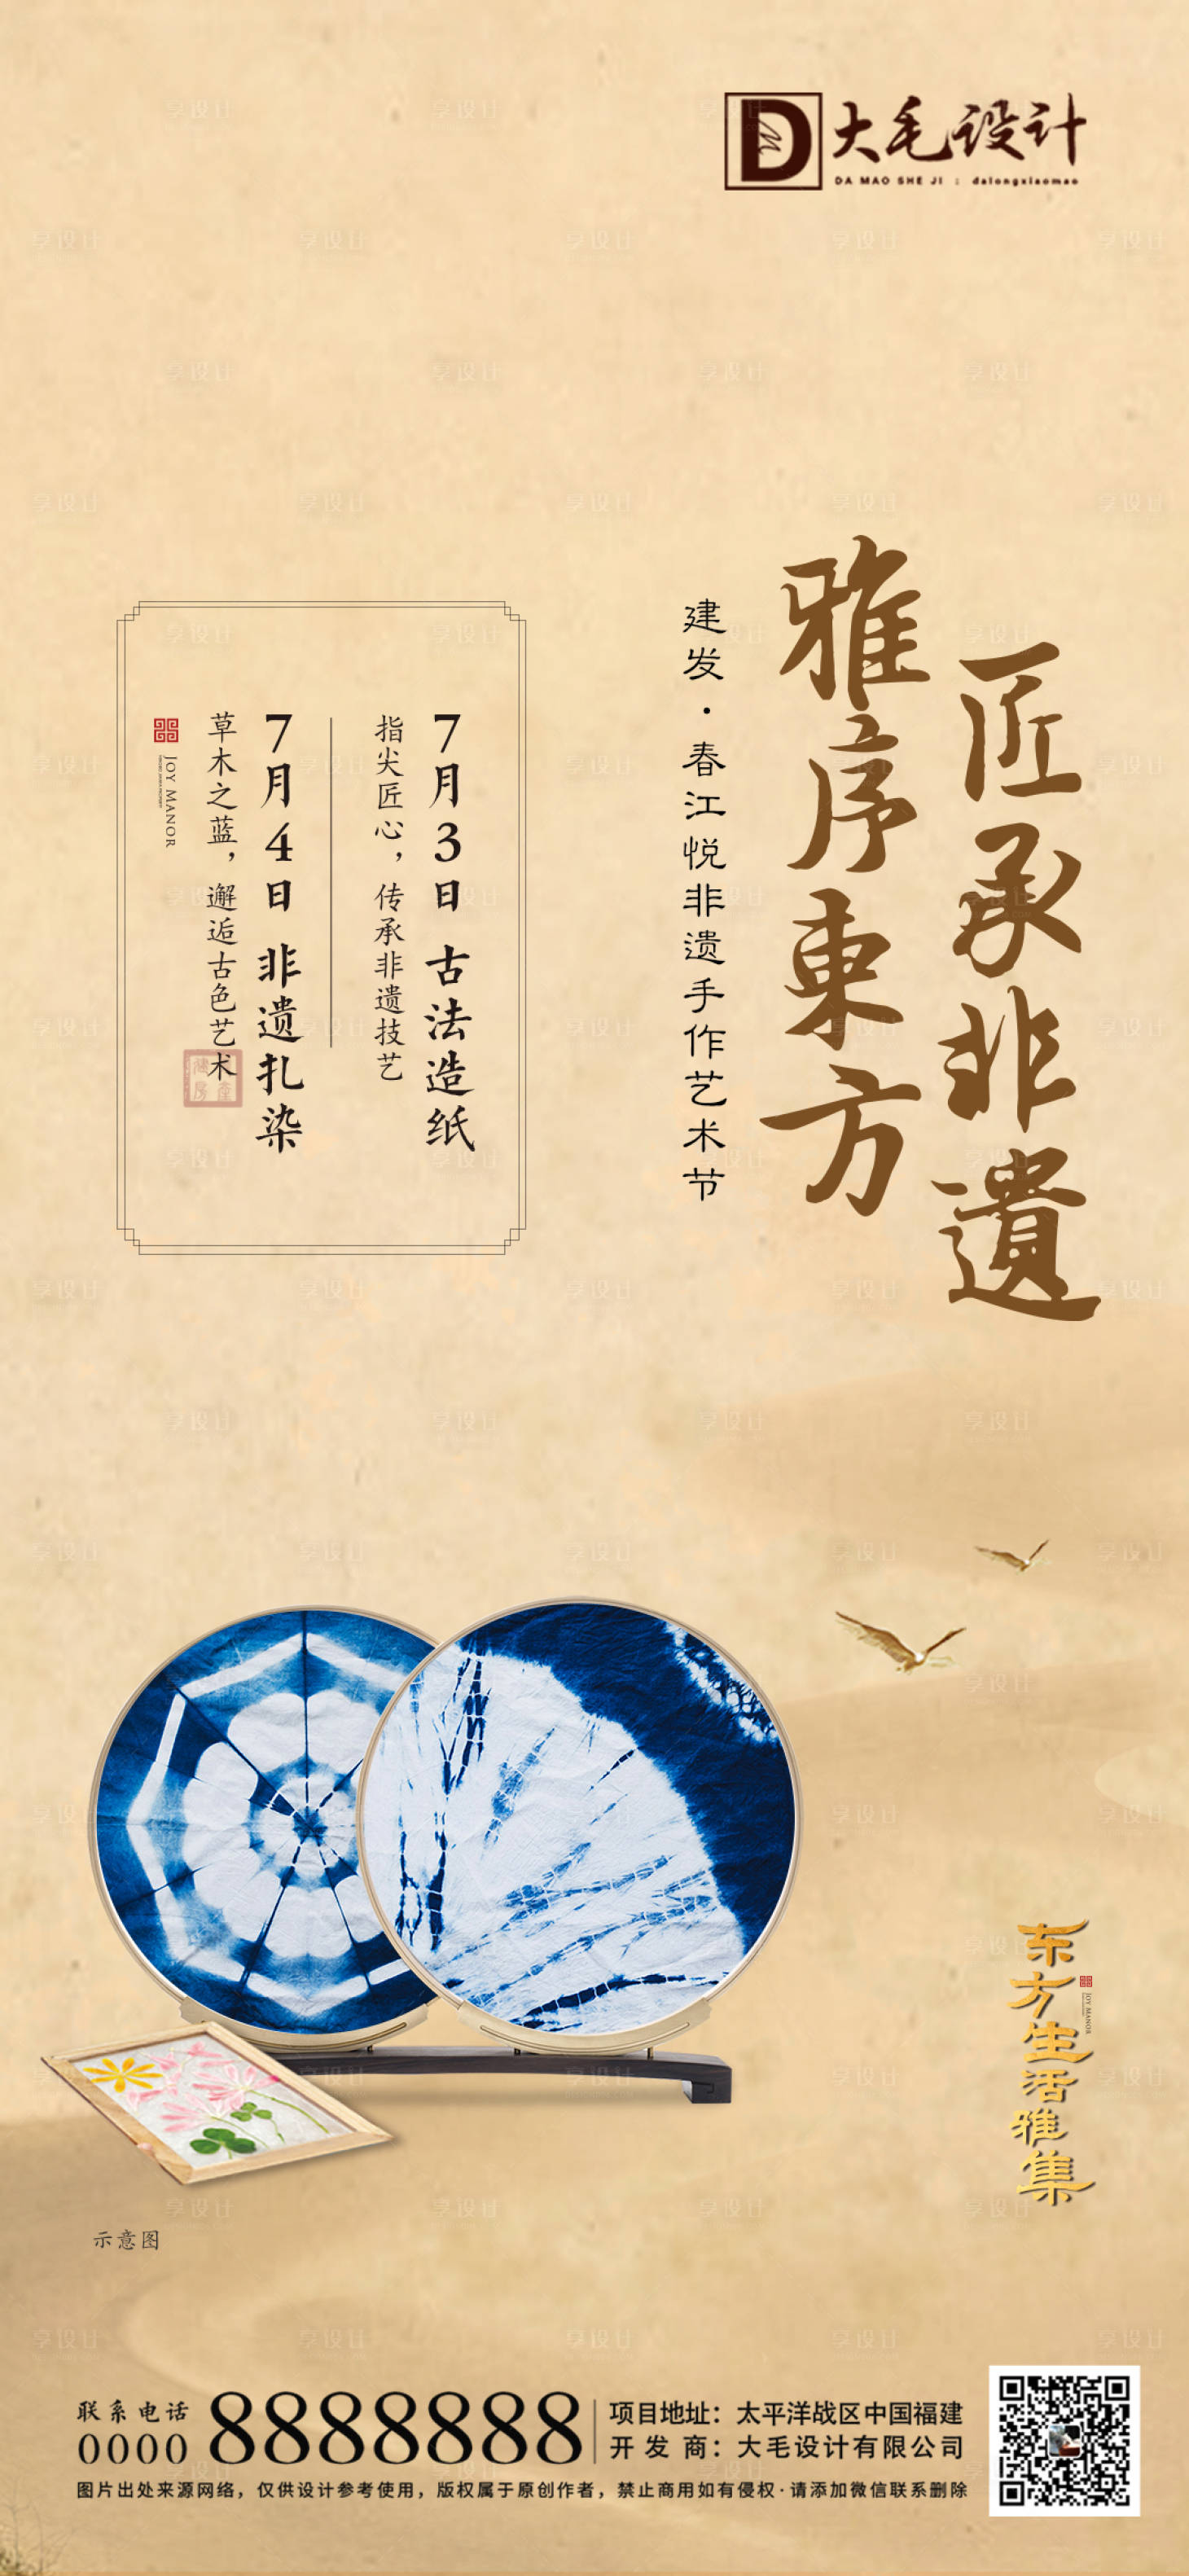 大毛设计
DA MAO SHE JI : dalongxiaomao
匠承非遺
雅序東方
建发·春江悦非遗手作艺术节
7月3日 古法造纸
指尖匠心，传承非遗技艺
7月4日 非遗扎染
草木之蓝，邂逅古色艺术
JOY MANOR
东方生活雅集
JOY MANOR
示意图
联系电话
0000
8888888
项目地址：太平洋战区中国福建
开发商：大毛设计有限公司
图片出处来源网络，仅供设计参考使用，版权属于原创作者，禁止商用如有侵权·请添加微信联系删除
享设计